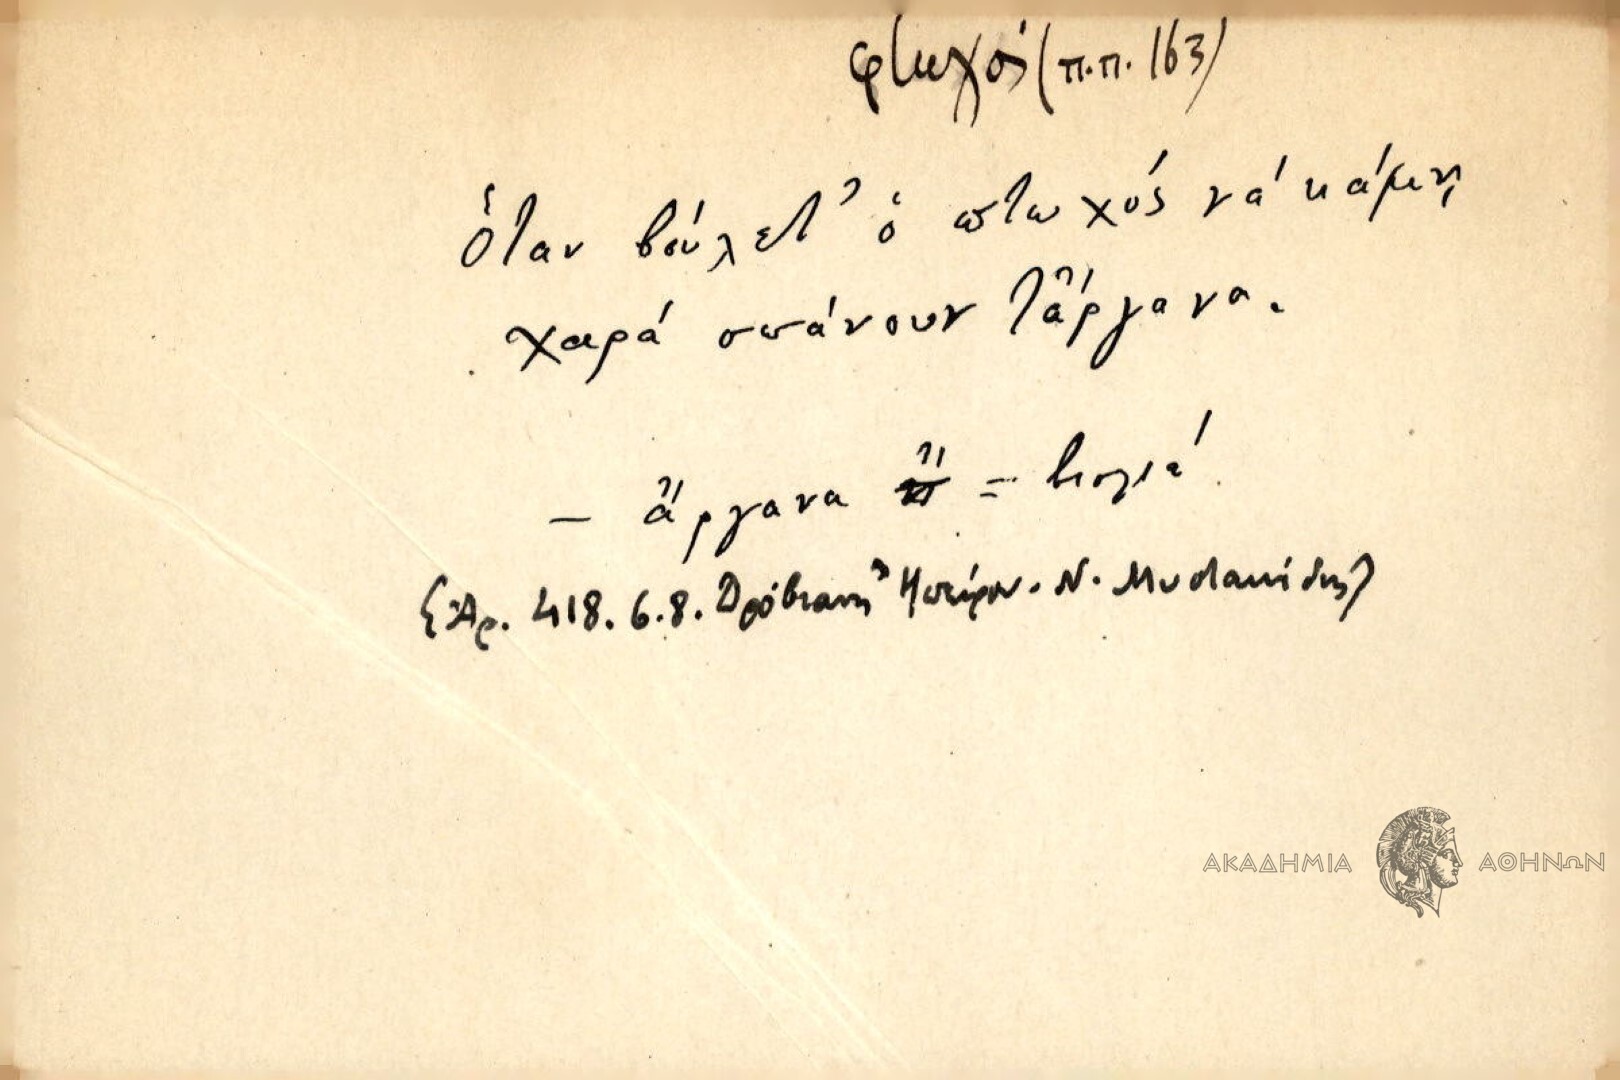 φτωχός (π.π. 163)
Ὅταν βούλετ' ὁ πτωχός νά κάμῃ
χαρά σπάνουν τἄργανα.
— ἄργανα = βιολιά
(Ἀρ. 418. 6.8. Δρόβιανη Ἠπείρου. Ν. Μυστακίδης)
ΑΚΑΔΗΜΙΑ ΑΘΗΝΩΝ